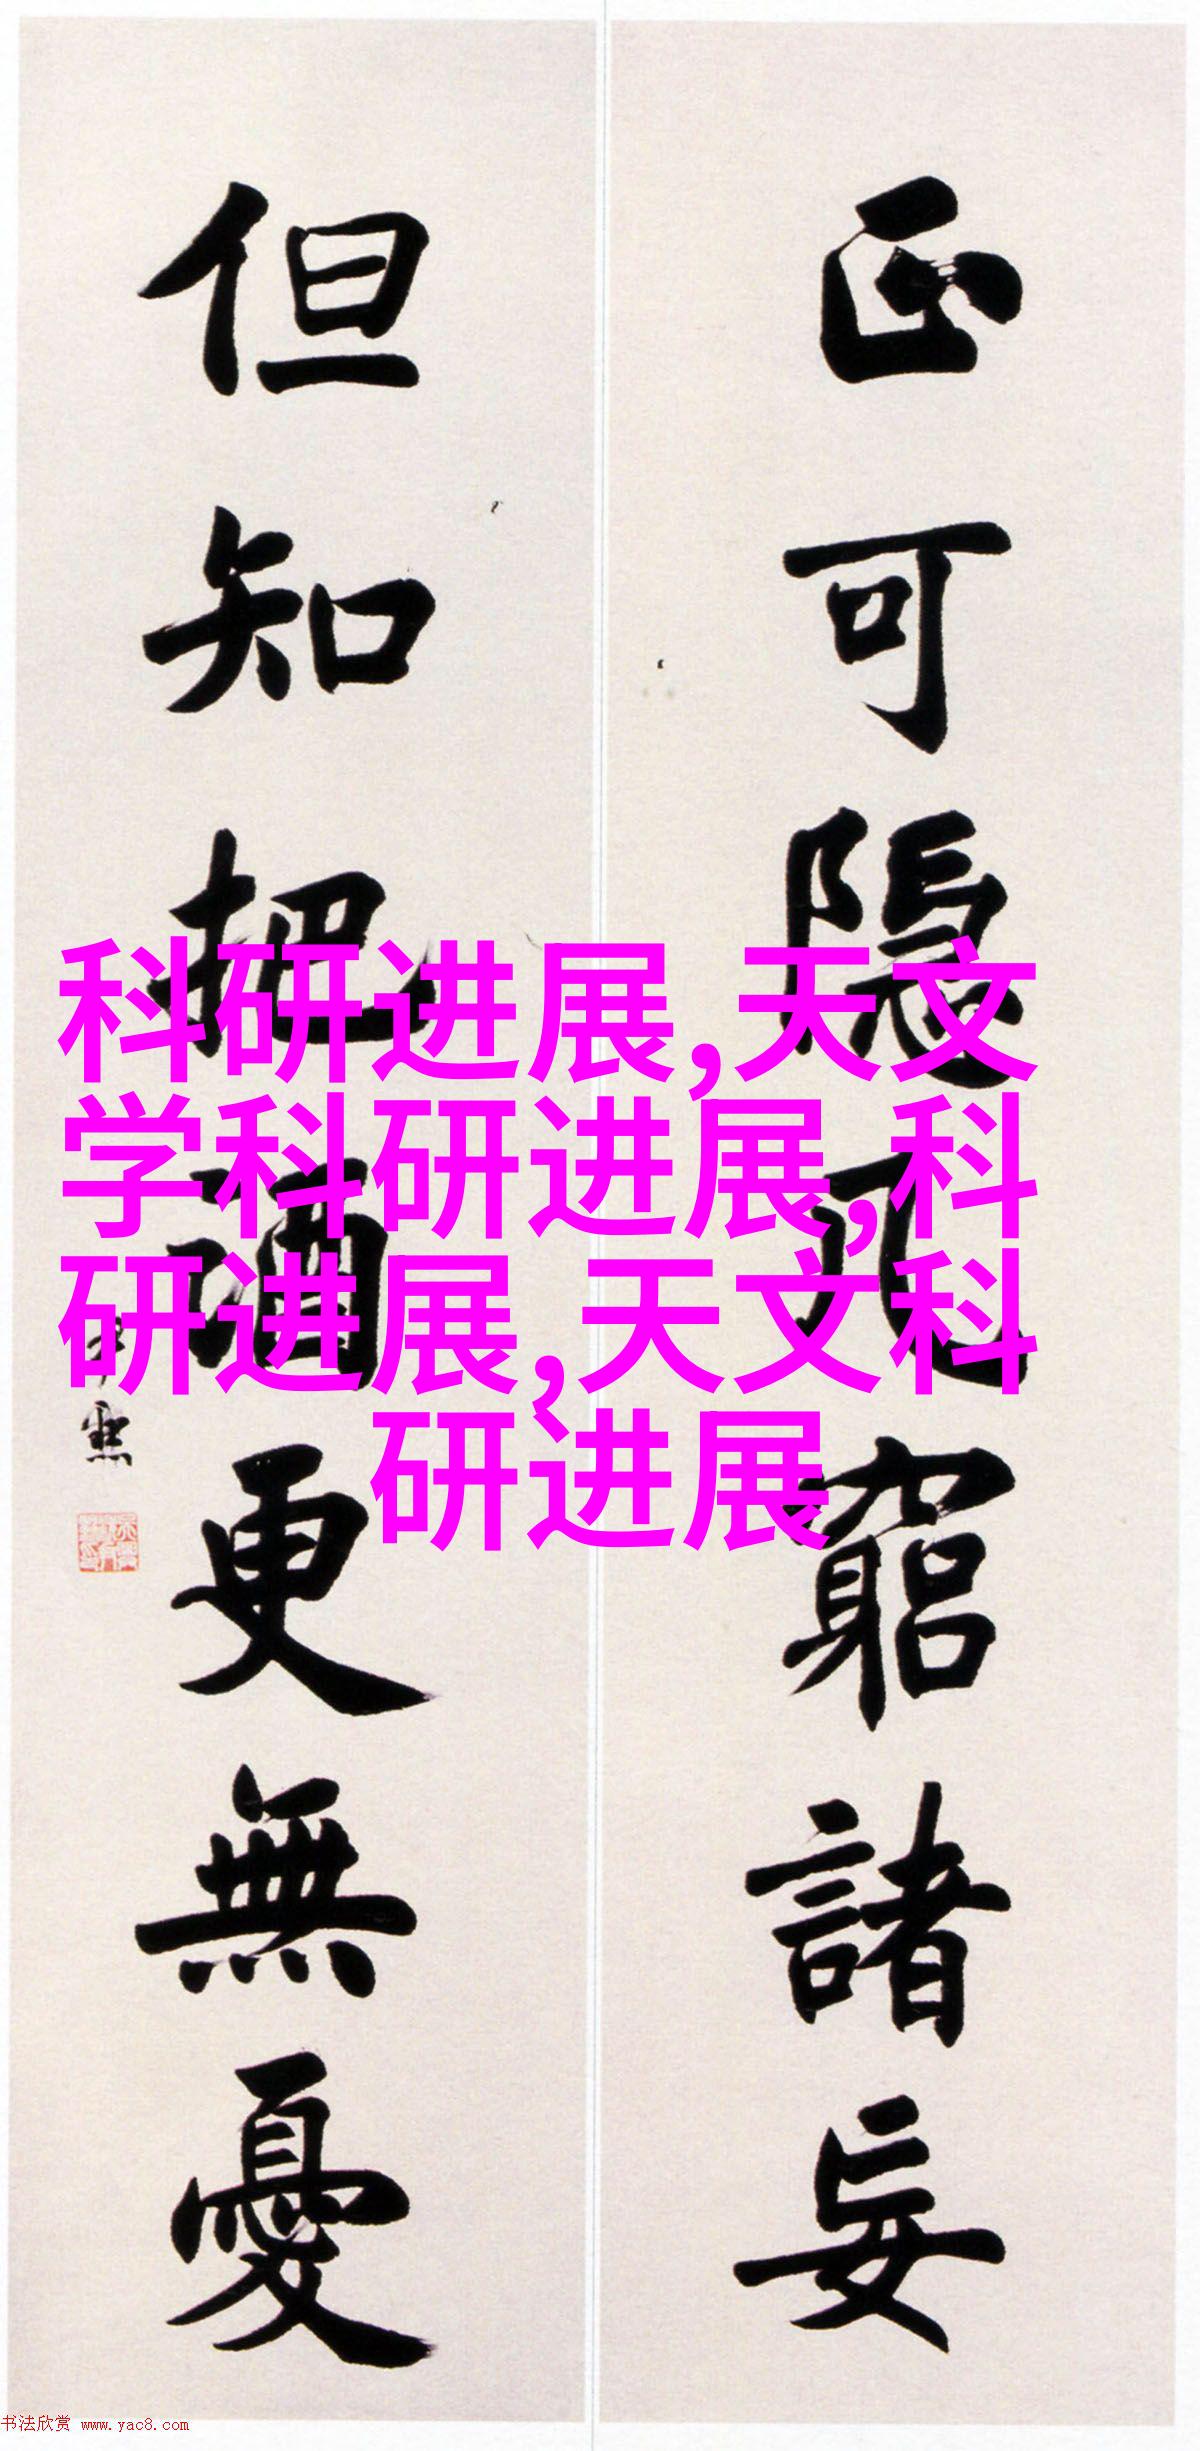 正可隱几窮諸妄
但知把酒更無憂
科研进展,天文
学科研进展,科
研进展,天文科
研进展
书法欣赏 www.yac8.com